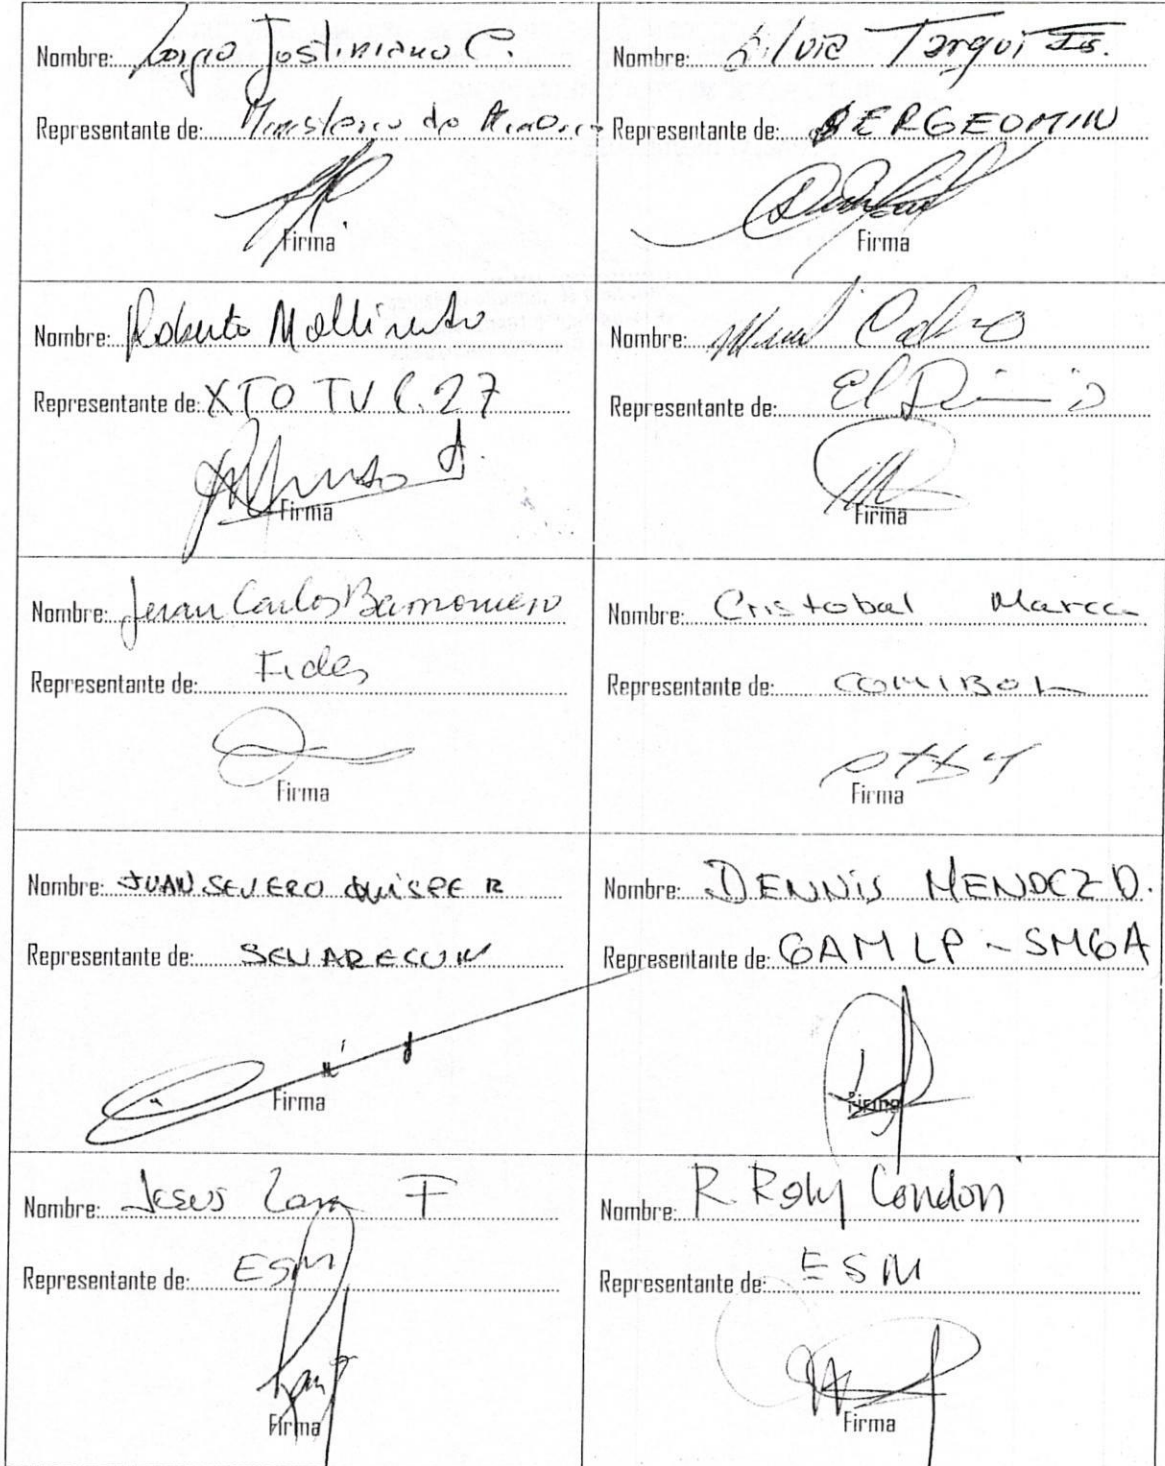 Nombre: Sergio Justiniano C.
Representante de: Ministerio de
Firma
Nombre: Silvia Tarqui Is.
Representante de: SERGEOMIN
Firma
Nombre: Roberto
Representante de: XTO TV C.27
Firma
Nombre:
Representante de: El
Firma
Nombre: Juan Carlos
Representante de: Fides
Firma
Nombre: Cristobal Marca
Representante de: COMIBOL
Firma
Nombre: JUAN SEVERO QUISPE R
Representante de: SENARECOM
Firma
Nombre: DENNIS MENDEZ D.
Representante de: GAM LP - SMGA
Firma
Nombre: Jesus F
Representante de: ESM
Firma
Nombre: R. Roly Condori
Representante de: ESM
Firma